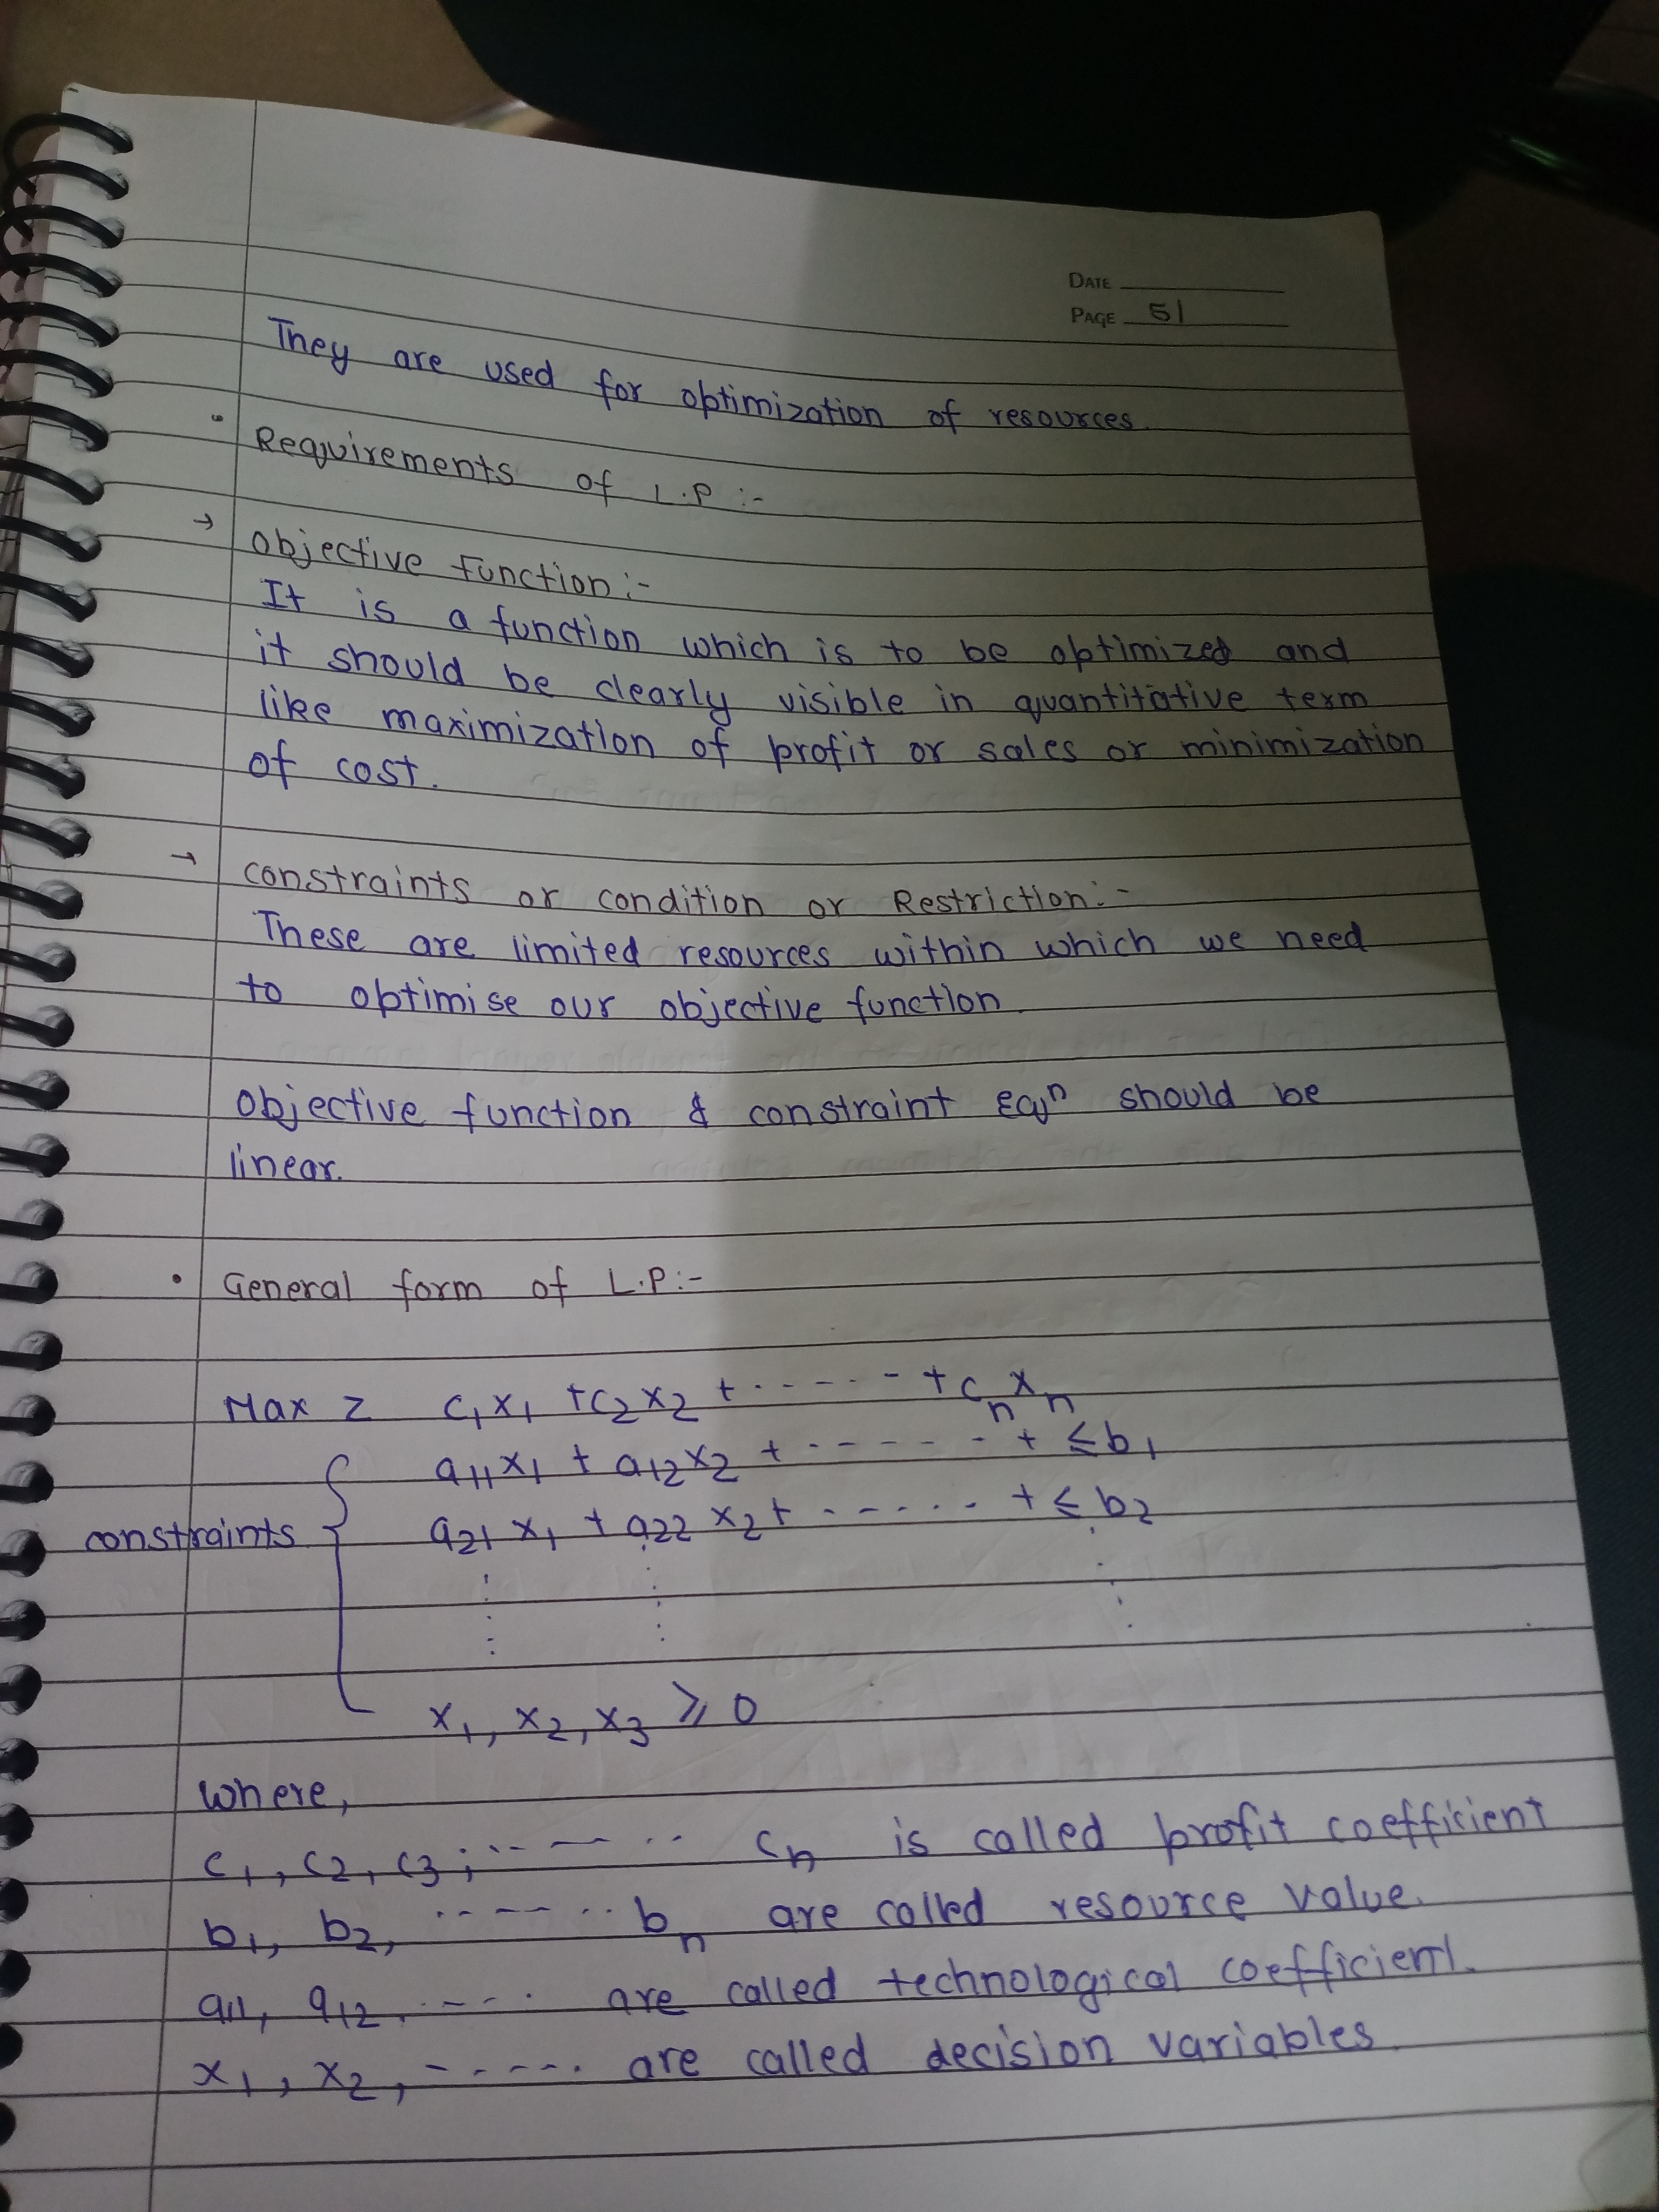 DATE
PAGE 51
They are used for optimization of resources.
• Requirements of L.P :-
→ Objective Function :-
It is a function which is to be optimized and
it should be clearly visible in quantitative term
like maximization of profit or sales or minimization
of cost.
→ constraints or condition or Restriction:-
These are limited resources within which we need
to optimise our objective function.
Objective function & constraint Eqⁿ should be
linear.
• General form of L.P:-
Max Z c₁x₁ + c₂x₂ + ------ + cₙxₙ
a₁₁x₁ + a₁₂x₂ + ------ + ≤ b₁
constraints { a₂₁x₁ + a₂₂x₂ + ------ + ≤ b₂
⋮ ⋮ ⋮
x₁, x₂, x₃ ≥ 0
where,
c₁, c₂, c₃, ------ cₙ is called profit coefficient
b₁, b₂, ------ bₙ are called resource value.
a₁₁, a₁₂, ----- are called technological coefficient.
x₁, x₂, ------ are called decision variables.